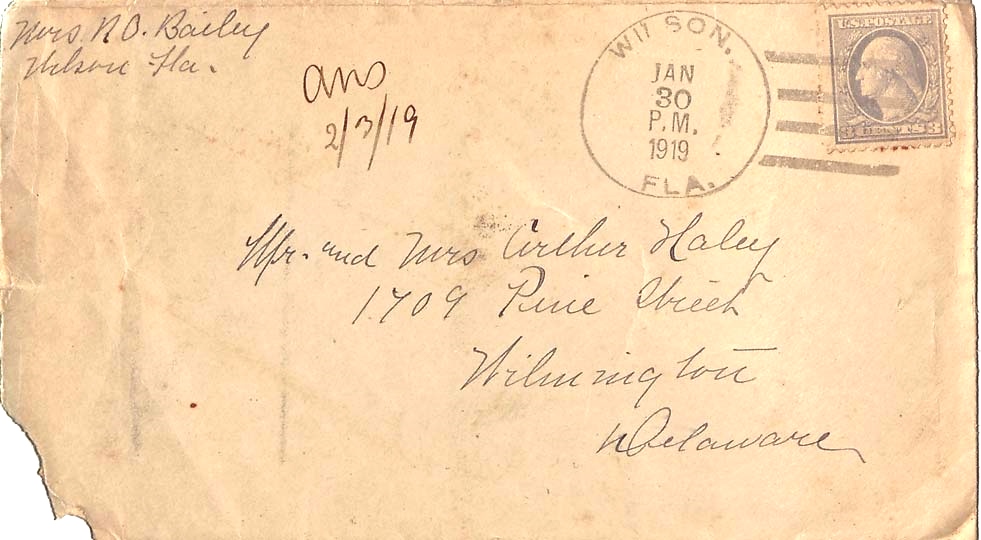 Mrs. R. O. Bailey
Wilson Fla.
ans
2/3/19
WILSON,
JAN
30
P.M.
1919
FLA.
U.S. POSTAGE
3 CENTS 3
Mr. and Mrs Arthur Haley
1709 Pine Street
Wilmington
Delaware